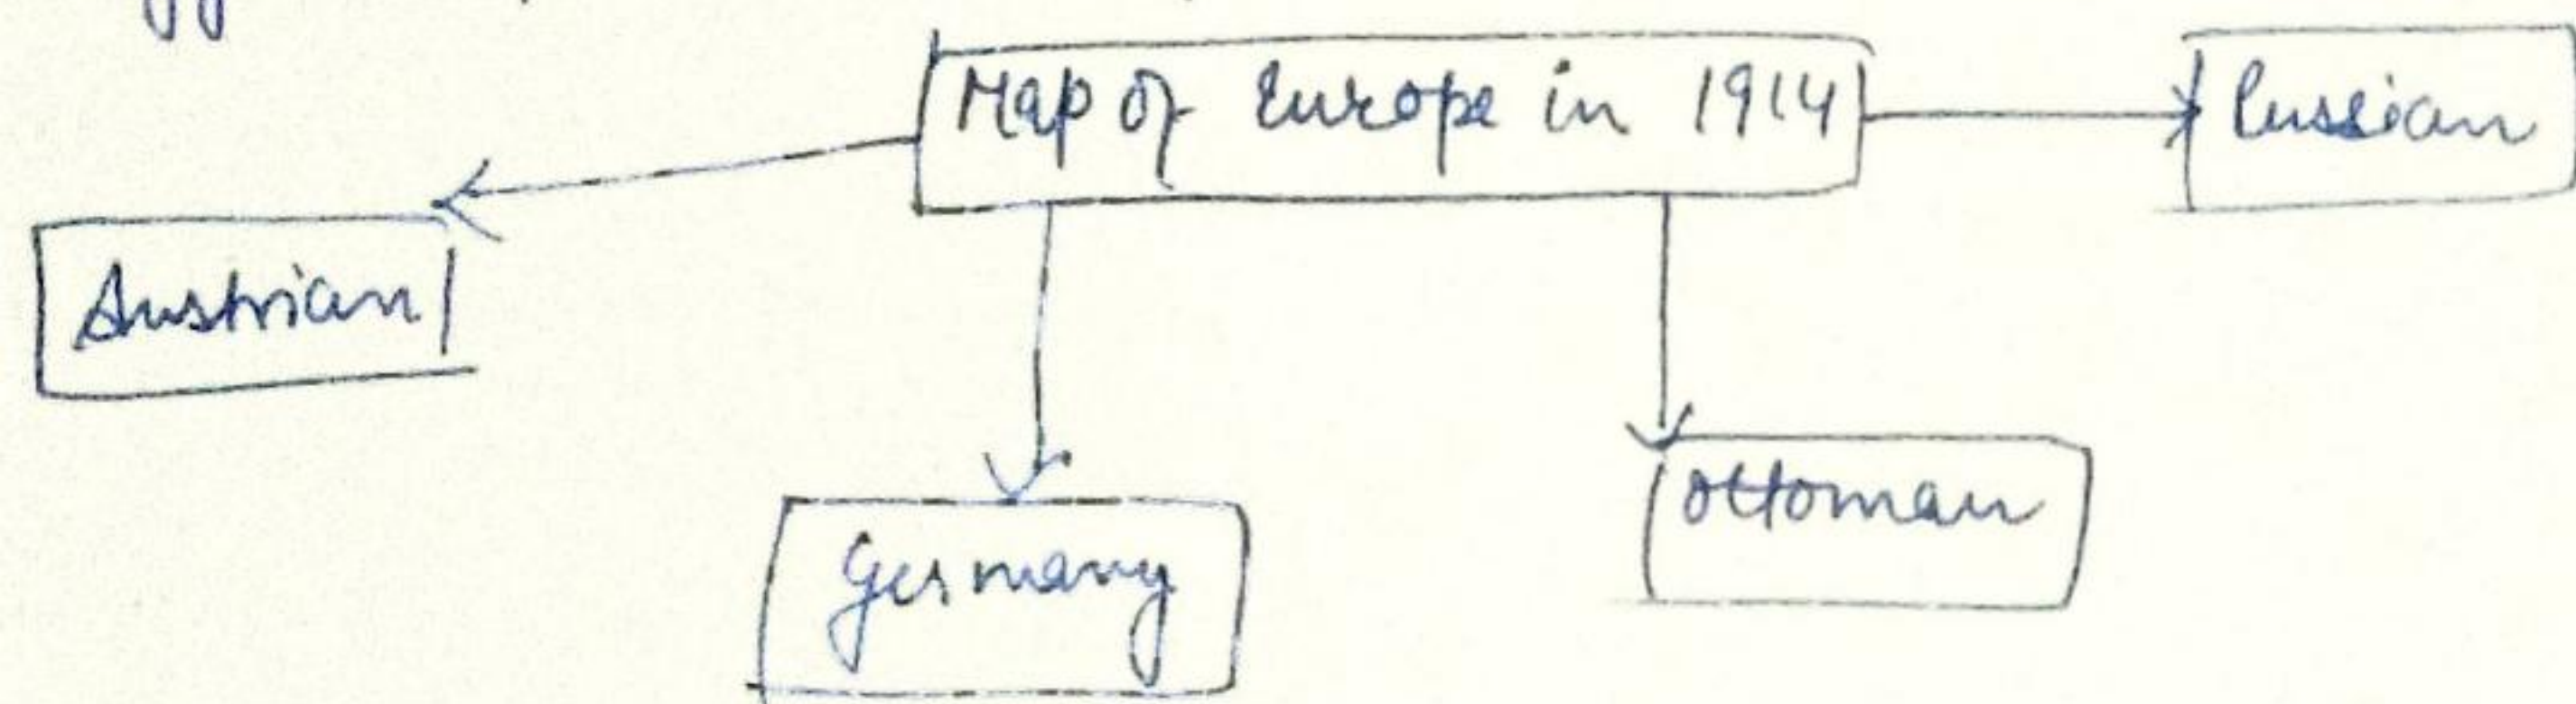 Map of Europe in 1914
Russian
Austrian
Germany
Ottoman